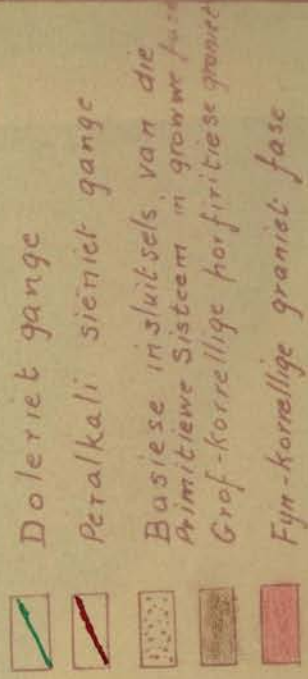 Doleriet gange
Peralkali siëniet gange
Basiese insluitsels van die
Primitiewe Sisteem in growwe fase
Grof-korrellige porfiritiese graniet
Fyn-korrellige graniet fase